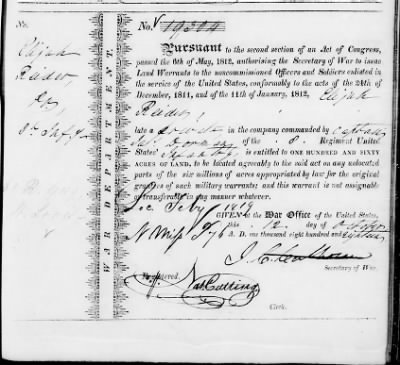 No. 19304
Elijah
PURSUANT to the second section of an Act of Congress,
passed the 6th of May, 1812, authorising the Secretary of War to issue
Land Warrants to the noncommissioned Officers and Soldiers enlisted in
the service of the United States, conformably to the acts of the 24th of
December, 1811, and of the 11th of January, 1812, Elijah
late a in the company commanded by Captain
of the 8. Regiment United
States'
is entitled to ONE HUNDRED AND SIXTY
ACRES OF LAND, to be located agreeably to the said act on any unlocated
parts of the six millions of acres appropriated by law for the original
grantees of such military warrants; and this warrant is not assignable
or transferable in any manner whatever.
Feby 1819
GIVEN at the War Office of the United States,
this 12. day of October
A. D. one thousand eight hundred and eighteen
J. C. Calhoun
Secretary of War.
Registered.
Clerk.
WAR DEPARTMENT.